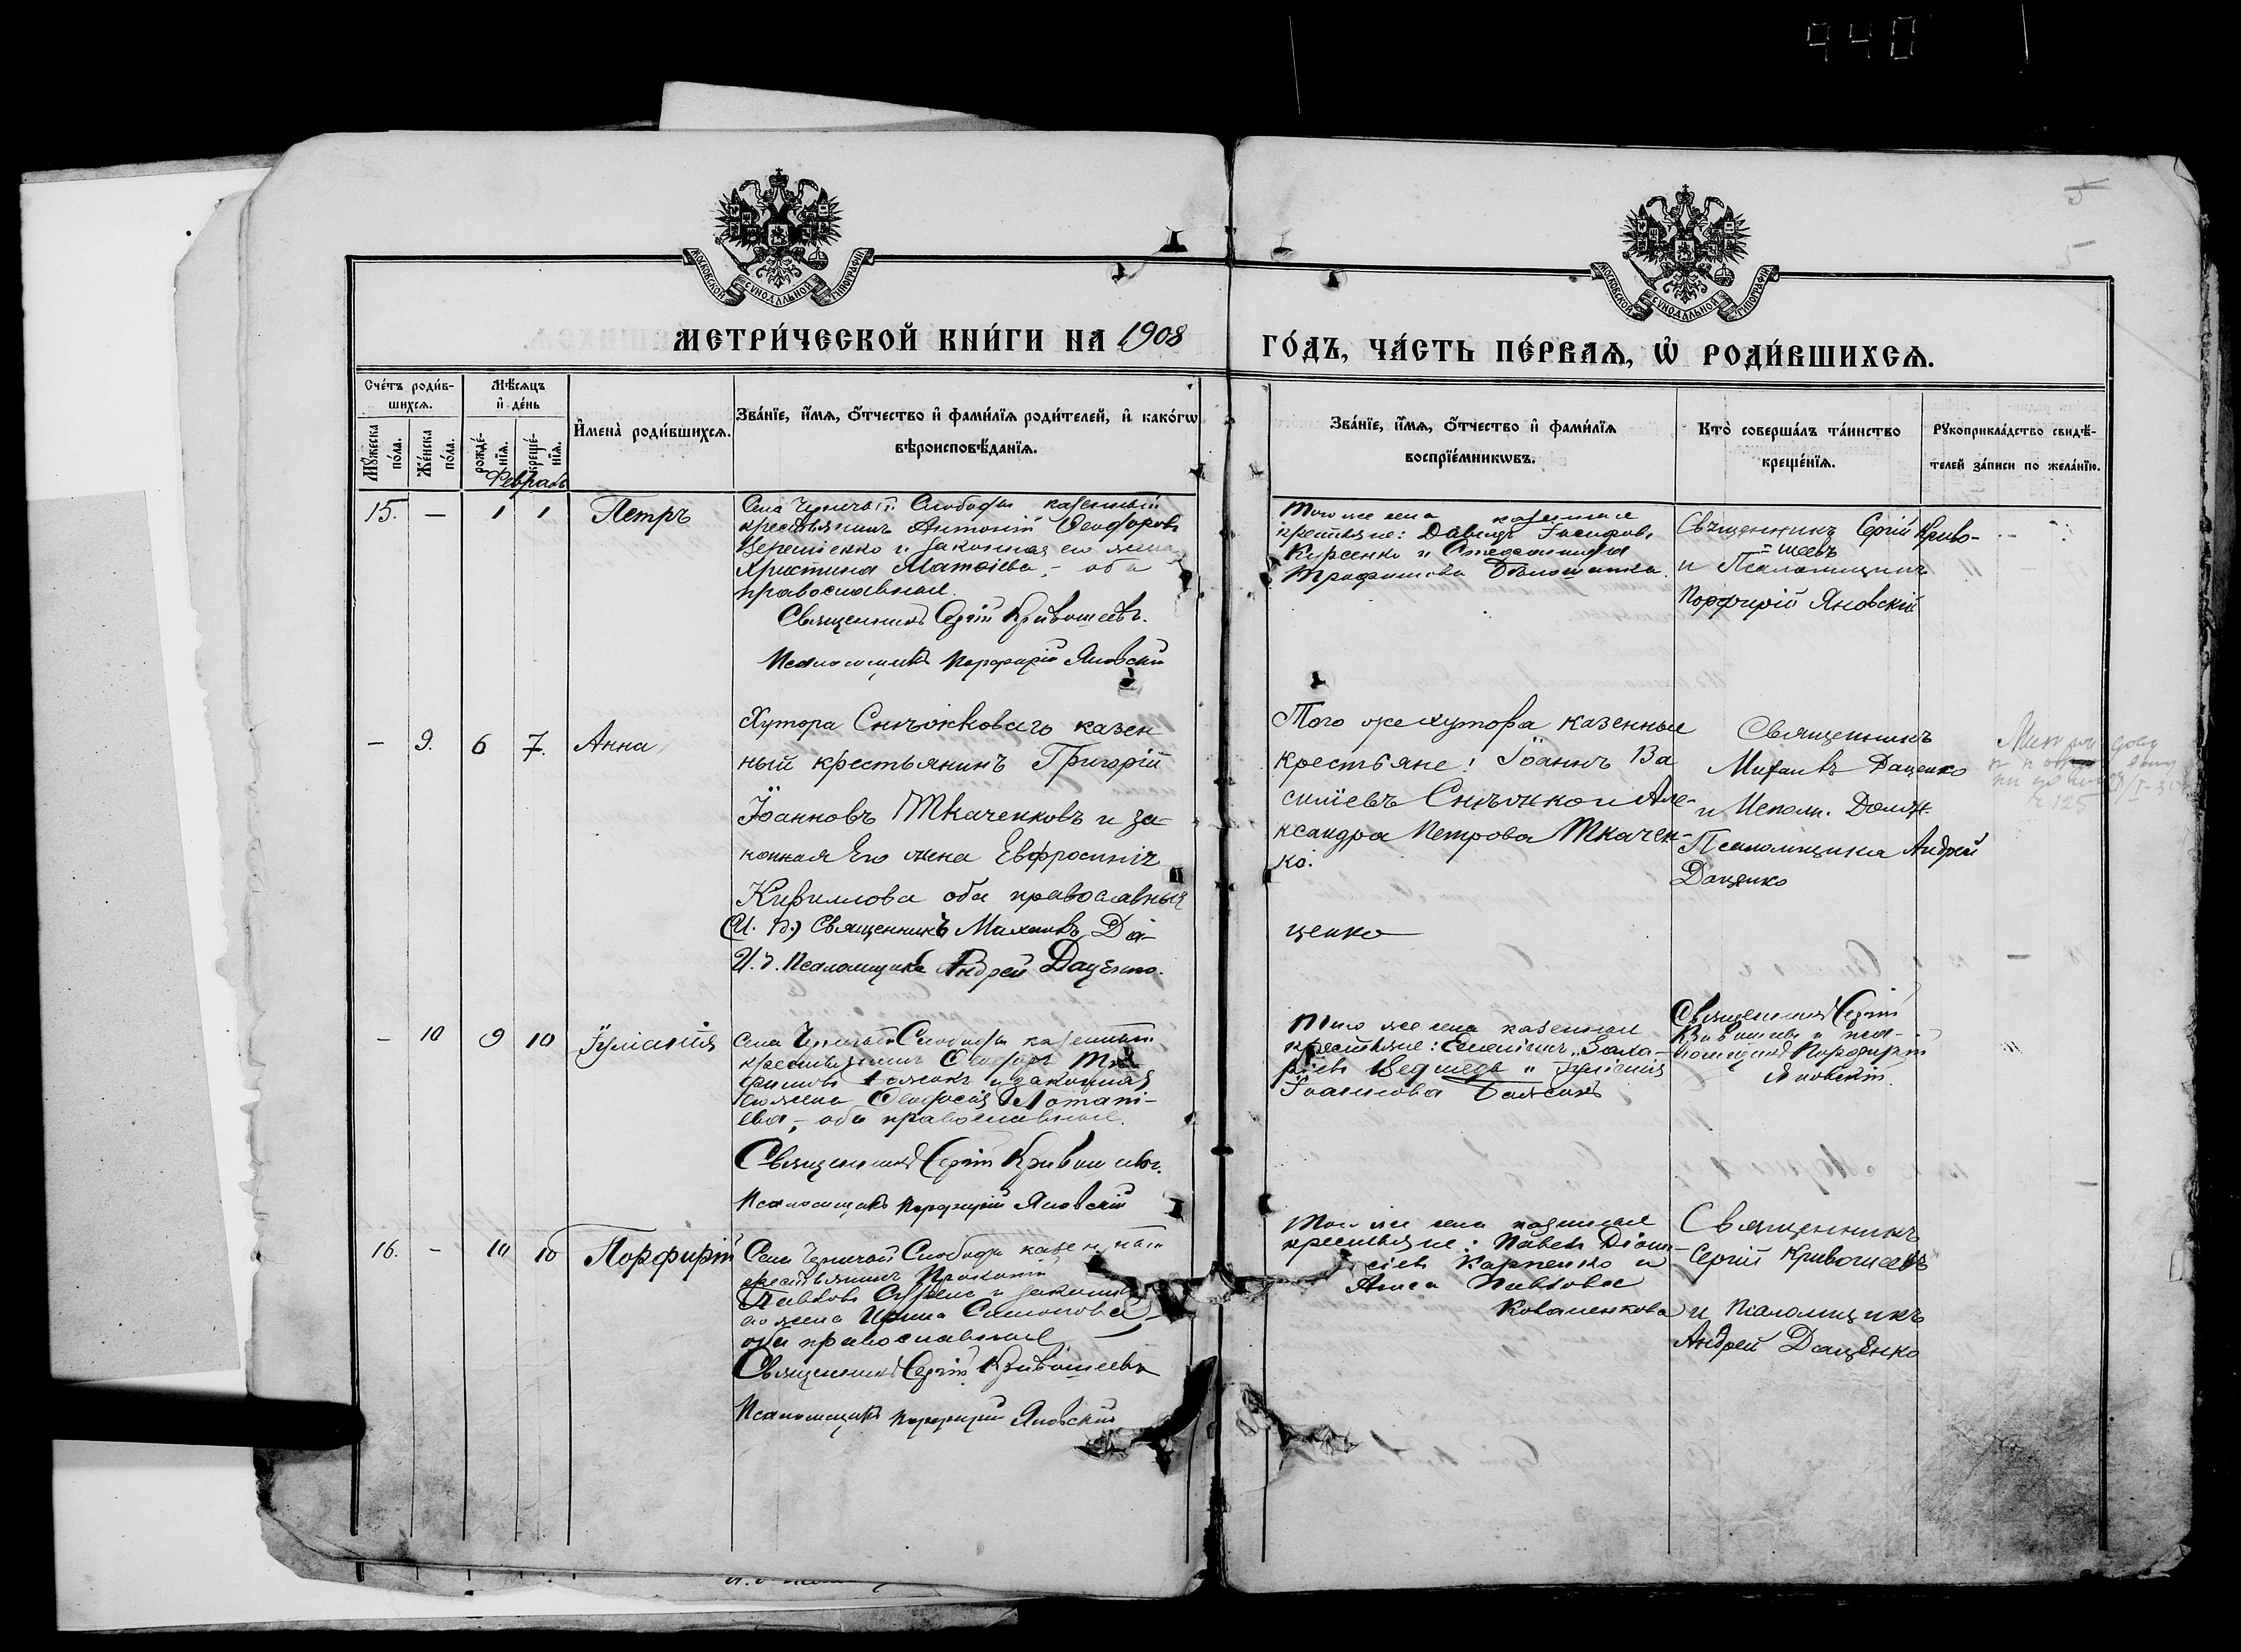 940
МОСКОВСКОЙ СѴНОДАЛЬНОЙ ТИПОГРАФІИ
МОСКОВСКОЙ СѴНОДАЛЬНОЙ ТИПОГРАФІИ
МЕТРИ́ЧЕСКОЙ КНИ́ГИ НА 1908
ГО́ДЪ, ЧА́СТЬ ПЕ́РВАѦ, Ѡ҆ РОДИ́ВШИХСѦ.
Сче́тъ роди́в-
шихсѧ.
Мꙋ́жеска по́ла.
Же́нска по́ла.
Мѣ́сѧцъ и҆ де́нь
рожде́-
нїѧ.
креще́-
нїѧ.
Февраль
И҆мена̀ роди́вшихсѧ.
Зва́нїе, и҆́мѧ, ѻ҆́тчество и҆ фами́лїѧ роди́телей, и҆ како́гѡ
вѣроисповѣ́данїѧ.
Зва́нїе, и҆́мѧ, ѻ҆́тчество и҆ фами́лїѧ
воспрїе́мникѡвъ.
Кто̀ соверша́лъ та́инство
креще́нїѧ.
Рꙋкоприкла́дство свидѣ́-
телей за́писи по жела́нїю.
15. — 1 1 Петръ
Села Слободы казенный
крестьянинъ Антоній Ѳеодоровъ
и законная его жена
Христина Матѳіева, - оба
православные.
Священникъ Сергій Кривошеевъ.
Псаломщикъ Порфирій Яновскій
Того же села казенные
крестьяне: Давидъ Іосифовъ
Кирсенко и Стефанида
Трофимова
Священникъ Сергій Криво-
шеевъ
и Псаломщикъ
Порфирій Яновскій
— 9. 6 7. Анна
Хутора казен
ный крестьянинъ Григорій
Іоанновъ Ткаченковъ и за-
конная его жена Евфросинія
Кириллова оба православныя
Священникъ Михаилъ Да-
И. д. Псаломщика Андрей Даценко.
Того же хутора казенные
крестьяне: Іоаннъ Ва
силіевъ Снѣжко и Але-
ксандра Петрова Ткачен-
ко.
ценко
Священникъ
Михаилъ Даценко
и Исполн. Должн.
Псаломщика Андрей
Даценко
— 10 9 10 Іуліанія
Села Слободы казенный
крестьянинъ Ѳеодоръ
и законная
его жена Ѳеодосія
ева, - оба православные.
Священникъ Сергій Кривошеевъ.
Псаломщикъ Порфирій Яновскій
Того же села казенные
крестьяне: Заха-
ріевъ Іуліанія
Іоаннова
Священникъ Сергій
Кривошеевъ и пса-
ломщикъ Порфирій
Яновскій.
16. — 10 10 Порфирій
Села Слободы казенный
крестьянинъ Прокопій
Павловъ и законная
его жена Ирина Симонова -
оба православные
Священникъ Сергій Кривошеевъ
Псаломщикъ Порфирій Яновскій
Того же села казенные
крестьяне: Павелъ Діони-
сіевъ Карпенко и
Анна Павлова
Коваленкова
Священникъ
Сергій Кривошеевъ
и Псаломщикъ
Андрей Даценко